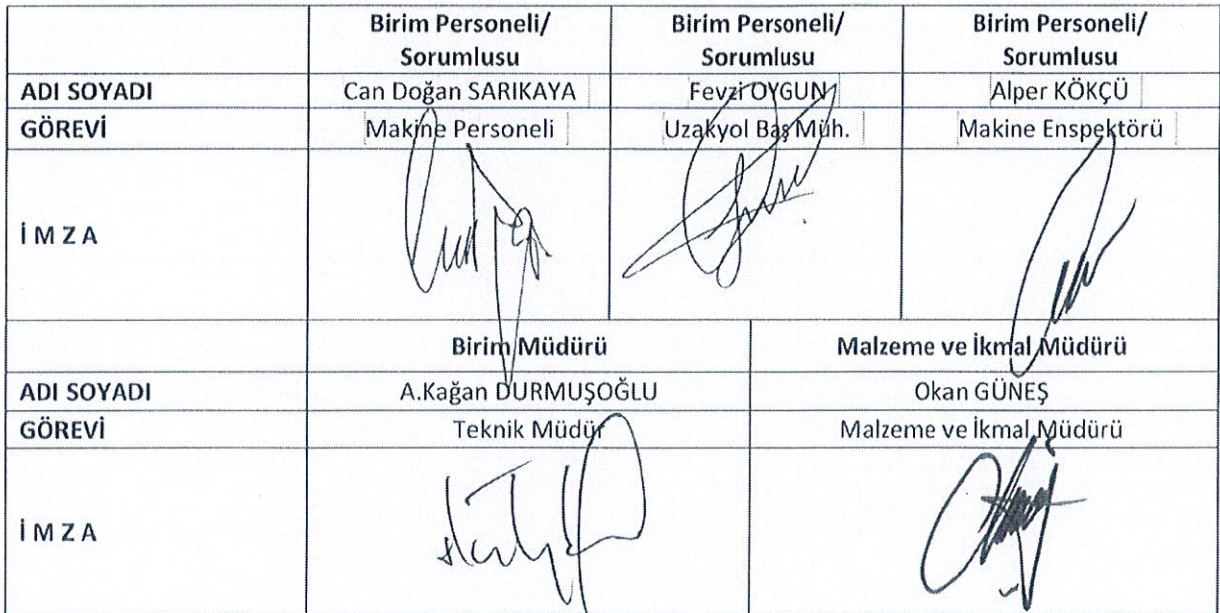 Birim Personeli/ Birim Personeli/ Birim Personeli/
Sorumlusu Sorumlusu Sorumlusu
ADI SOYADI Can Doğan SARIKAYA Fevzi OYGUN Alper KÖKÇÜ
GÖREVİ Makine Personeli Uzakyol Baş Müh. Makine Enspektörü
İ M Z A
Birim Müdürü Malzeme ve İkmal Müdürü
ADI SOYADI A.Kağan DURMUŞOĞLU Okan GÜNEŞ
GÖREVİ Teknik Müdür Malzeme ve İkmal Müdürü
İ M Z A